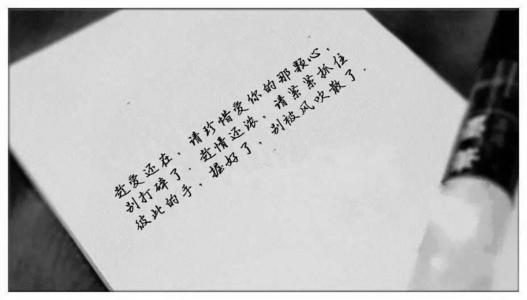 趁爱还在，请珍惜爱你的那颗心，
别打碎了．趁情还浓，请紧紧抓住
彼此的手，握好了，别被风吹散了．